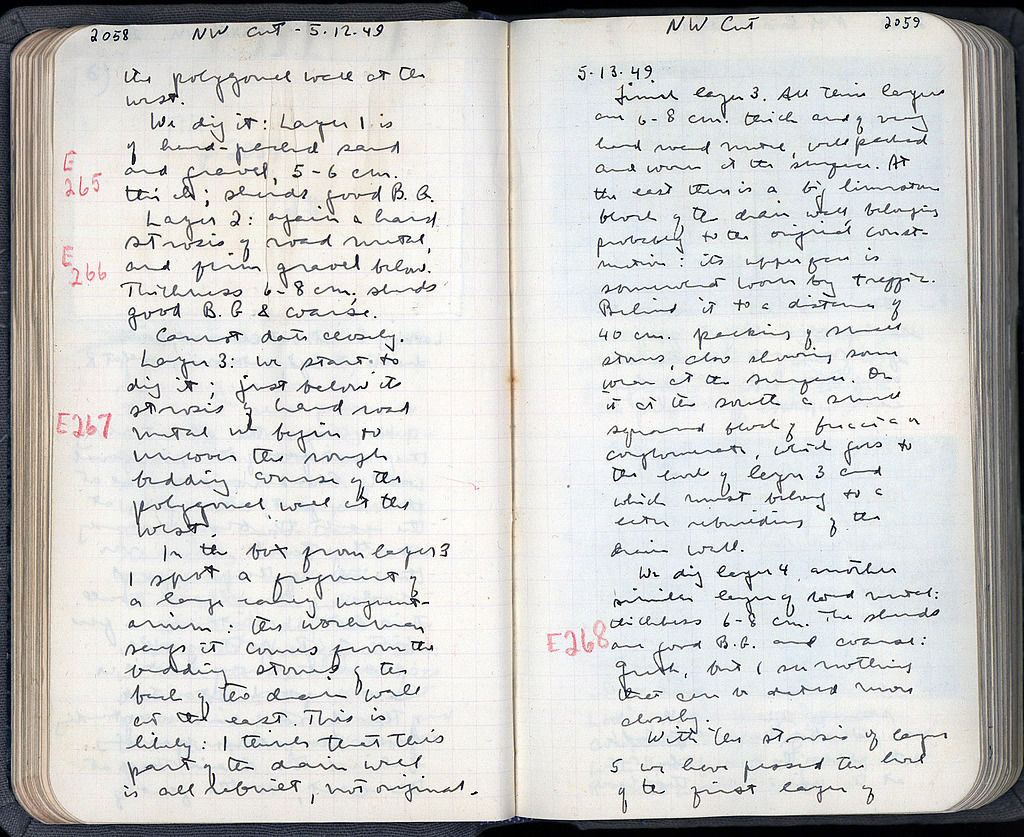 2058 NW Cut - 5.12.49
the polygonal wall at the
west.
We dig it: Layer 1 is
of hard-packed sand
E
265
and gravel, 5-6 cm.
thick; sherds good B.G.
Layer 2: again a hard
strosis of road metal,
E
266
and firm gravel below.
Thickness 6-8 cm; sherds
good B.G & coarse.
Cannot date closely.
Layer 3: we start to
dig it; just below its
strosis of hard road
E267
metal we begin to
uncover the rough
bedding course of the
polygonal wall at the
west.
In the box from layer 3
I spot a fragment of
a large early unguent-
arium: the workman
says it comes from the
bedding stones of the
back of the drain wall
at the east. This is
likely: I think that this
part of the drain wall
is all rebuilt, not original.
NW Cut 2059
5.13.49
Finish layer 3. All these layers
are 6-8 cm. thick and of very
hard road metal, well packed
and worn at the surface. At
the east there is a big limestone
block of the drain wall belonging
probably to the original const-
ruction: its upper face is
somewhat worn by traffic.
Behind it to a distance of
40 cm. packing of small
stones, also showing some
wear at the surface. On
it at the south a small
squared block of breccia or
conglomerate, which goes to
the level of layer 3 and
which must belong to a
later rebuilding of the
drain wall.
We dig layer 4, another
similar layer of road metal:
thickness 6-8 cm. The sherds
E268
are good B.G. and coarse:
Greek, but I see nothing
that can be dated more
closely.
With the strosis of layer
5 we have passed the level
of the first layer of